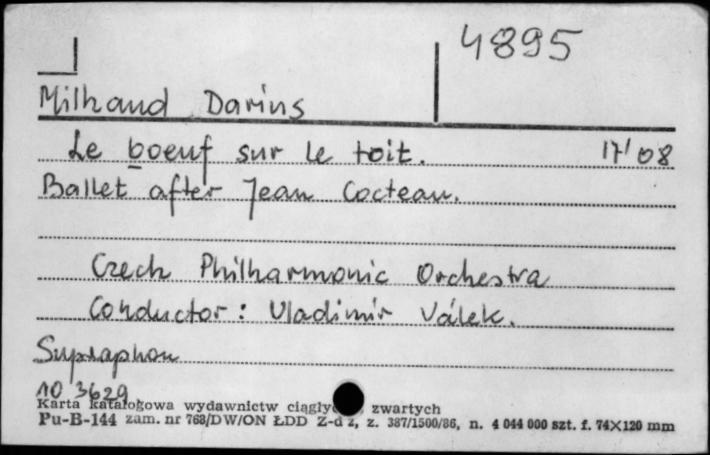 4895
Milhaud Darius
Le boeuf sur le toit. 17'08
Ballet after Jean Cocteau.
Czech Philharmonic Orchestra
Conductor: Vladimir Válek.
Supraphon
10 3629
Karta katalogowa wydawnictw ciągły zwartych
Pu-B-144 zam. nr 768/DW/ON ŁDD Z-d 2, z. 387/1500/86, n. 4 044 000 szt. f. 74×120 mm